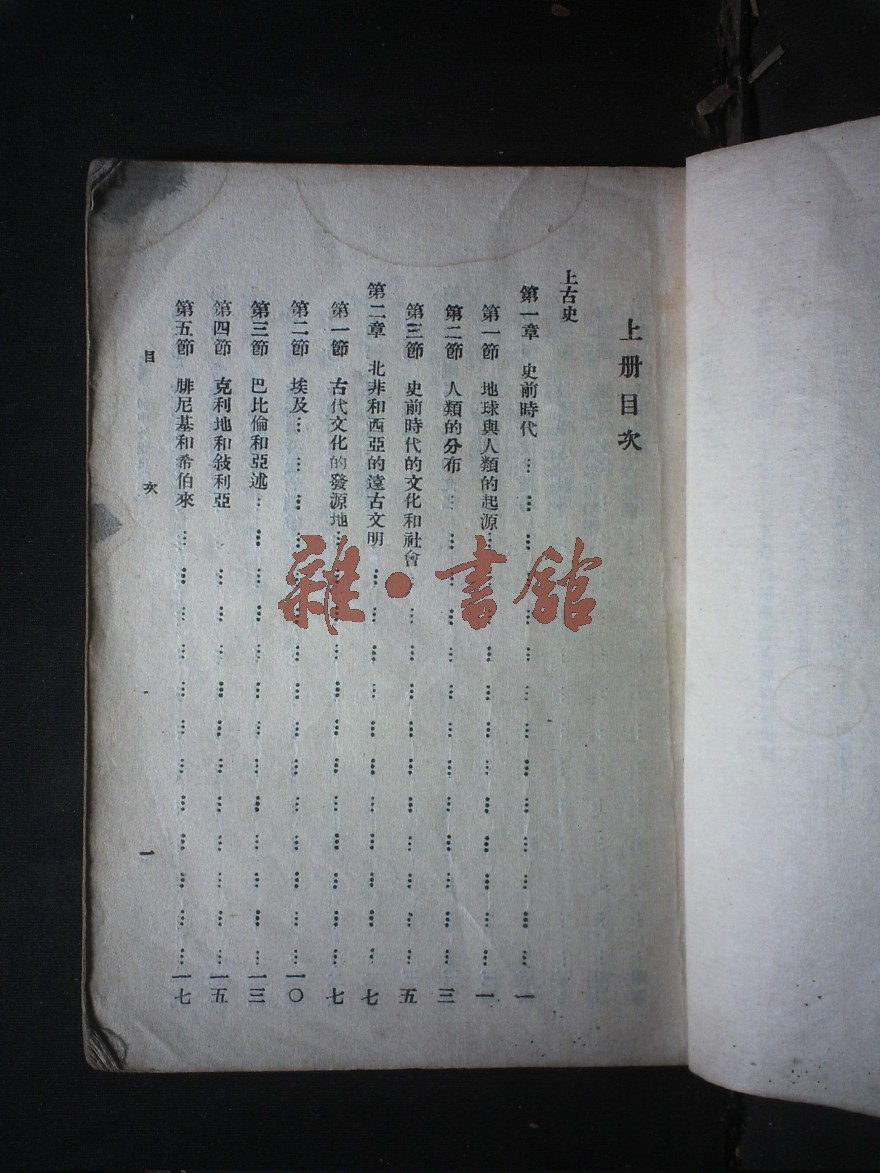 上册目次
上古史
第一章 史前時代 ……………………………… 一
第一節 地球與人類的起源 ……………………………… 一
第二節 人類的分布 ……………………………… 三
第三節 史前時代的文化和社會 ……………………………… 五
第二章 北非和西亞的遠古文明 ……………………………… 七
第一節 古代文化的發源地 ……………………………… 七
第二節 埃及 ……………………………… 一〇
第三節 巴比倫和亞述 ……………………………… 一三
第四節 克利地和敍利亞 ……………………………… 一五
第五節 腓尼基和希伯來 ……………………………… 一七
目次 一
雜·書館